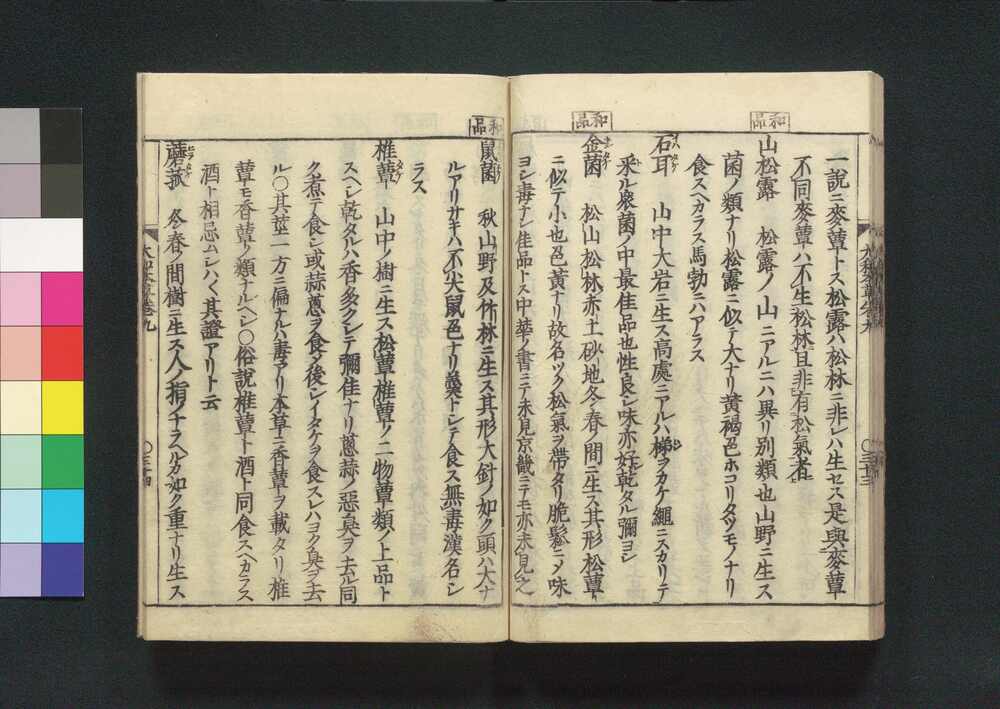 一説ニ麥蕈トス松露ハ松林ニ非レハ生セス是與麥蕈
不同麥蕈ハ不生松林且非有松氣者
和品
山松露 松露ノ山ニアルニハ異リ別類也山野ニ生ス
菌ノ類ナリ松露ニ似テ大ナリ黄褐色ホコリタツモノナリ
食スヘカラス馬勃ニハアラス
石耳 山中大岩ニ生ス高處ニアルハ梯ヲカケ繩ニスカリテ
釆ル衆菌ノ中最佳品也性良シ味亦好乾タル彌ヨシ
和品
金菌 松山松林赤土砂地冬春ノ間ニ生ス其形松蕈
ニ似テ小也色黄ナリ故名ツク松氣ヲ帶タリ脆鬆ニノ味
ヨシ毒ナシ佳品トス中華ノ書ニテ未見京畿ニテモ亦未見之
〇三十三
和品
鼠菌 秋山野及竹林ニ生ス其形大針ノ如ク頭ハ大ナ
ルアリサキハ不尖鼠色ナリ羹トシテ食ス無毒漢名シ
ラス
椎蕈 山中ノ樹ニ生ス松蕈椎蕈ノ二物蕈類ノ上品ト
スヘシ乾タルハ香多クシテ彌佳ナリ蔥蒜ノ惡臭ヲ去ル同
ク煮テ食シ或蒜蔥ヲ食シ後シイタケヲ食スレハヨク臭ヲ去
ル〇其莖一方ニ偏ナルハ毒アリ本草ニ香蕈ヲ載タリ椎
蕈モ香蕈ノ類ナルヘシ〇俗説椎蕈ト酒ト同食スヘカラス
酒ト相忌ムシハ〱其證アリト云
蘑菰 冬春ノ間樹ニ生ス人ノ指ノナラヘルカ如ク重ナリ生ス
大和本草卷九
〇三十四